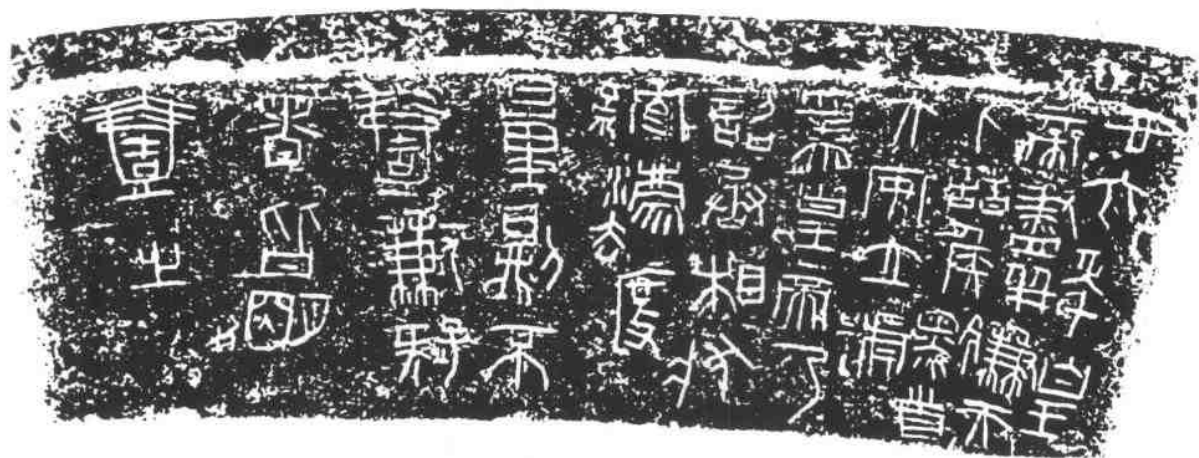 廿六年皇
帝盡并兼天
下諸侯黔首
大安立號
爲皇帝乃
詔丞相狀
綰灋度
量則不
壹歉疑
者皆明
壹之